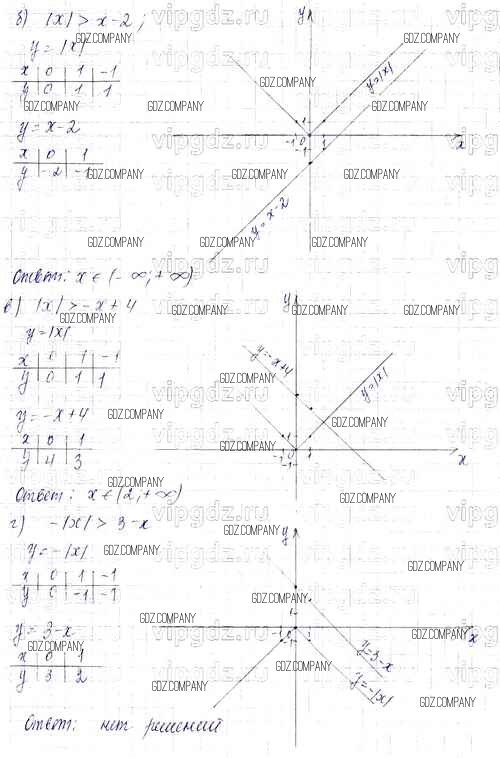 б) |x| > x-2;
y = |x|
x | 0 | 1 | -1
y | 0 | 1 | 1
y = x-2
x | 0 | 1
y | -2 | -1
y
x
y=|x|
y=x-2
1
-1 0 1
-1
Ответ: x ∈ (-∞; +∞)
в) |x| > -x + 4
y = |x|
x | 0 | 1 | -1
y | 0 | 1 | 1
y = -x + 4
x | 0 | 1
y | 4 | 3
y
x
y=-x+4
y=|x|
1
-1 0 1
-1
Ответ: x ∈ (2; +∞)
г) -|x| > 3-x
y = -|x|
x | 0 | 1 | -1
y | 0 | -1 | -1
y = 3-x
x | 0 | 1
y | 3 | 2
y
x
y=3-x
y=-|x|
1
-1 0 1
-1
Ответ: нет решений
GDZ.COMPANY
vipgdz.ru